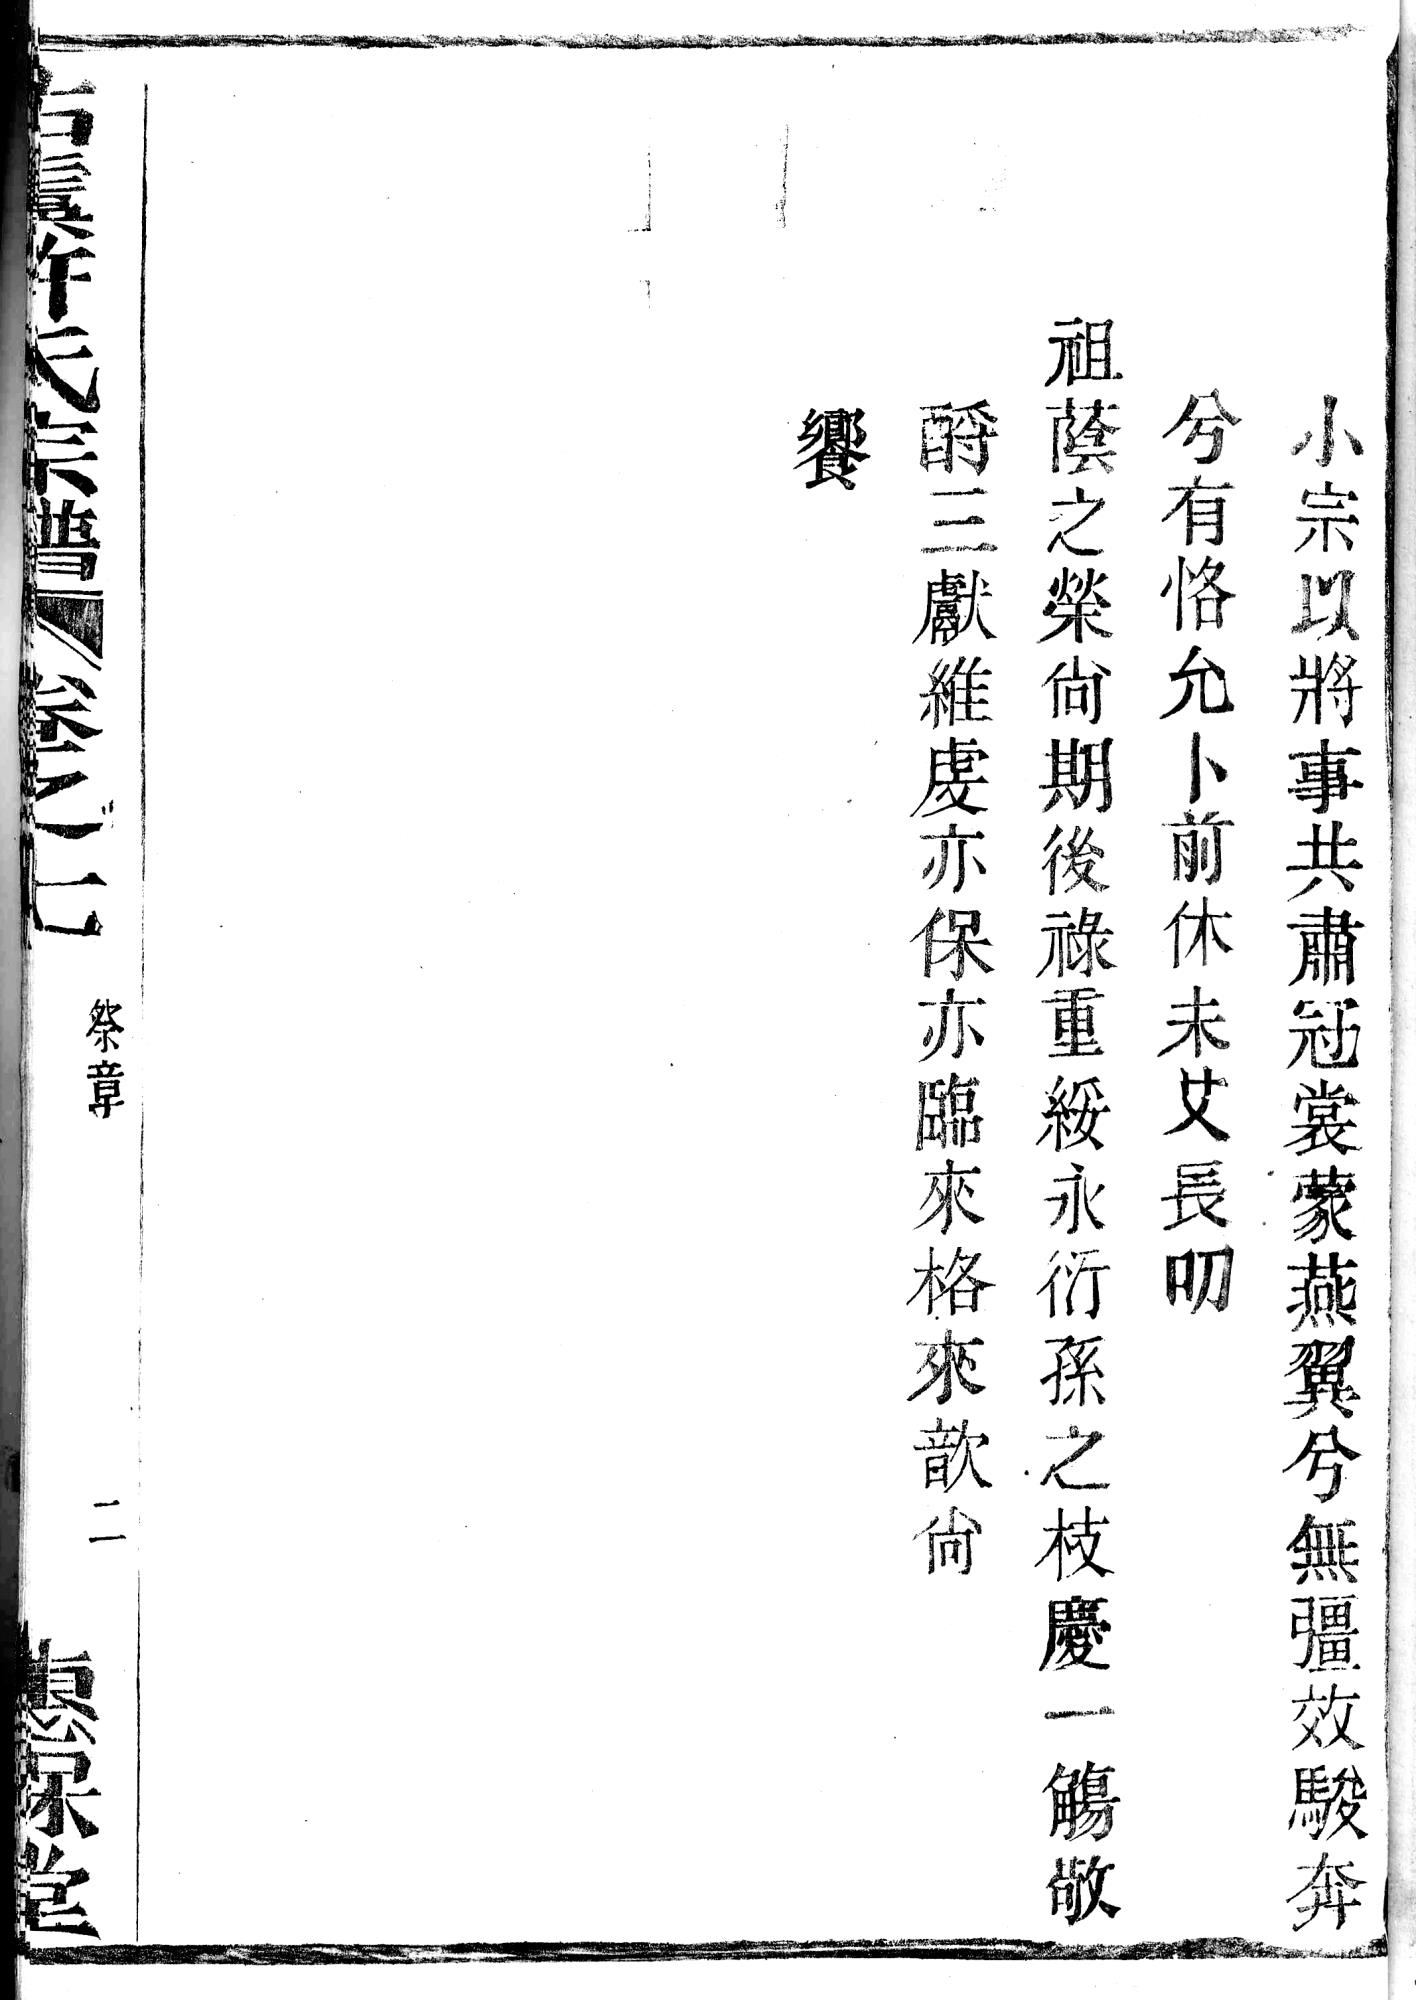 小宗以將事共肅冠裳蒙燕翼兮無彊效駿奔
兮有恪允卜前休未艾長叨
祖蔭之榮尙期後祿重綏永衍孫之枝慶一觴敬
酹三獻維虔亦保亦臨來格來歆尙
饗
古虞許氏宗譜 卷之一
祭章
二
惠保堂